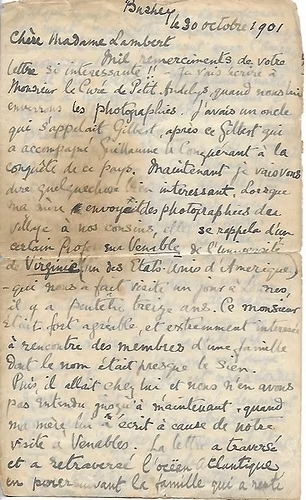 Bushey
le 30 octobre 1901
Chère Madame Lambert
Mil remerciments de votre
lettre si interessante!! - Je vais écrire à
Monsieur le Curé de Petit Andelys, quand nous lui
envoyons les photographies. J'avais un oncle
qui s'appelait Gilbert, après ce Gilbert qui
a accompagné Guillaume le Conquérant à la
conquête de ce pays. Maintenant je vais vous
dire quelquechose bien intéressant. Lorsque
ma mère envoyait des photographies du
village à nos cousins, elle se rappela d'un
certain Professeur Venable de l'université
de Virginie, un des Etats-Unis d'Amerique,
- qui nous a fait visite un jour à
il y a peutêtre treize ans. Ce monsieur
était fort agréable, et extremement interessé
à rencontre des membres d'une famille
dont le nom était presque le sien.
Puis, il allait chez lui et nous n'en avons
pas entendu jusqu'à maintenant, quand
ma mère lui a écrit à cause de notre
visite à Venables. La lettre a traversé
et a retraversé l'océan Atlantique
en poursuivant la famille qui a resté